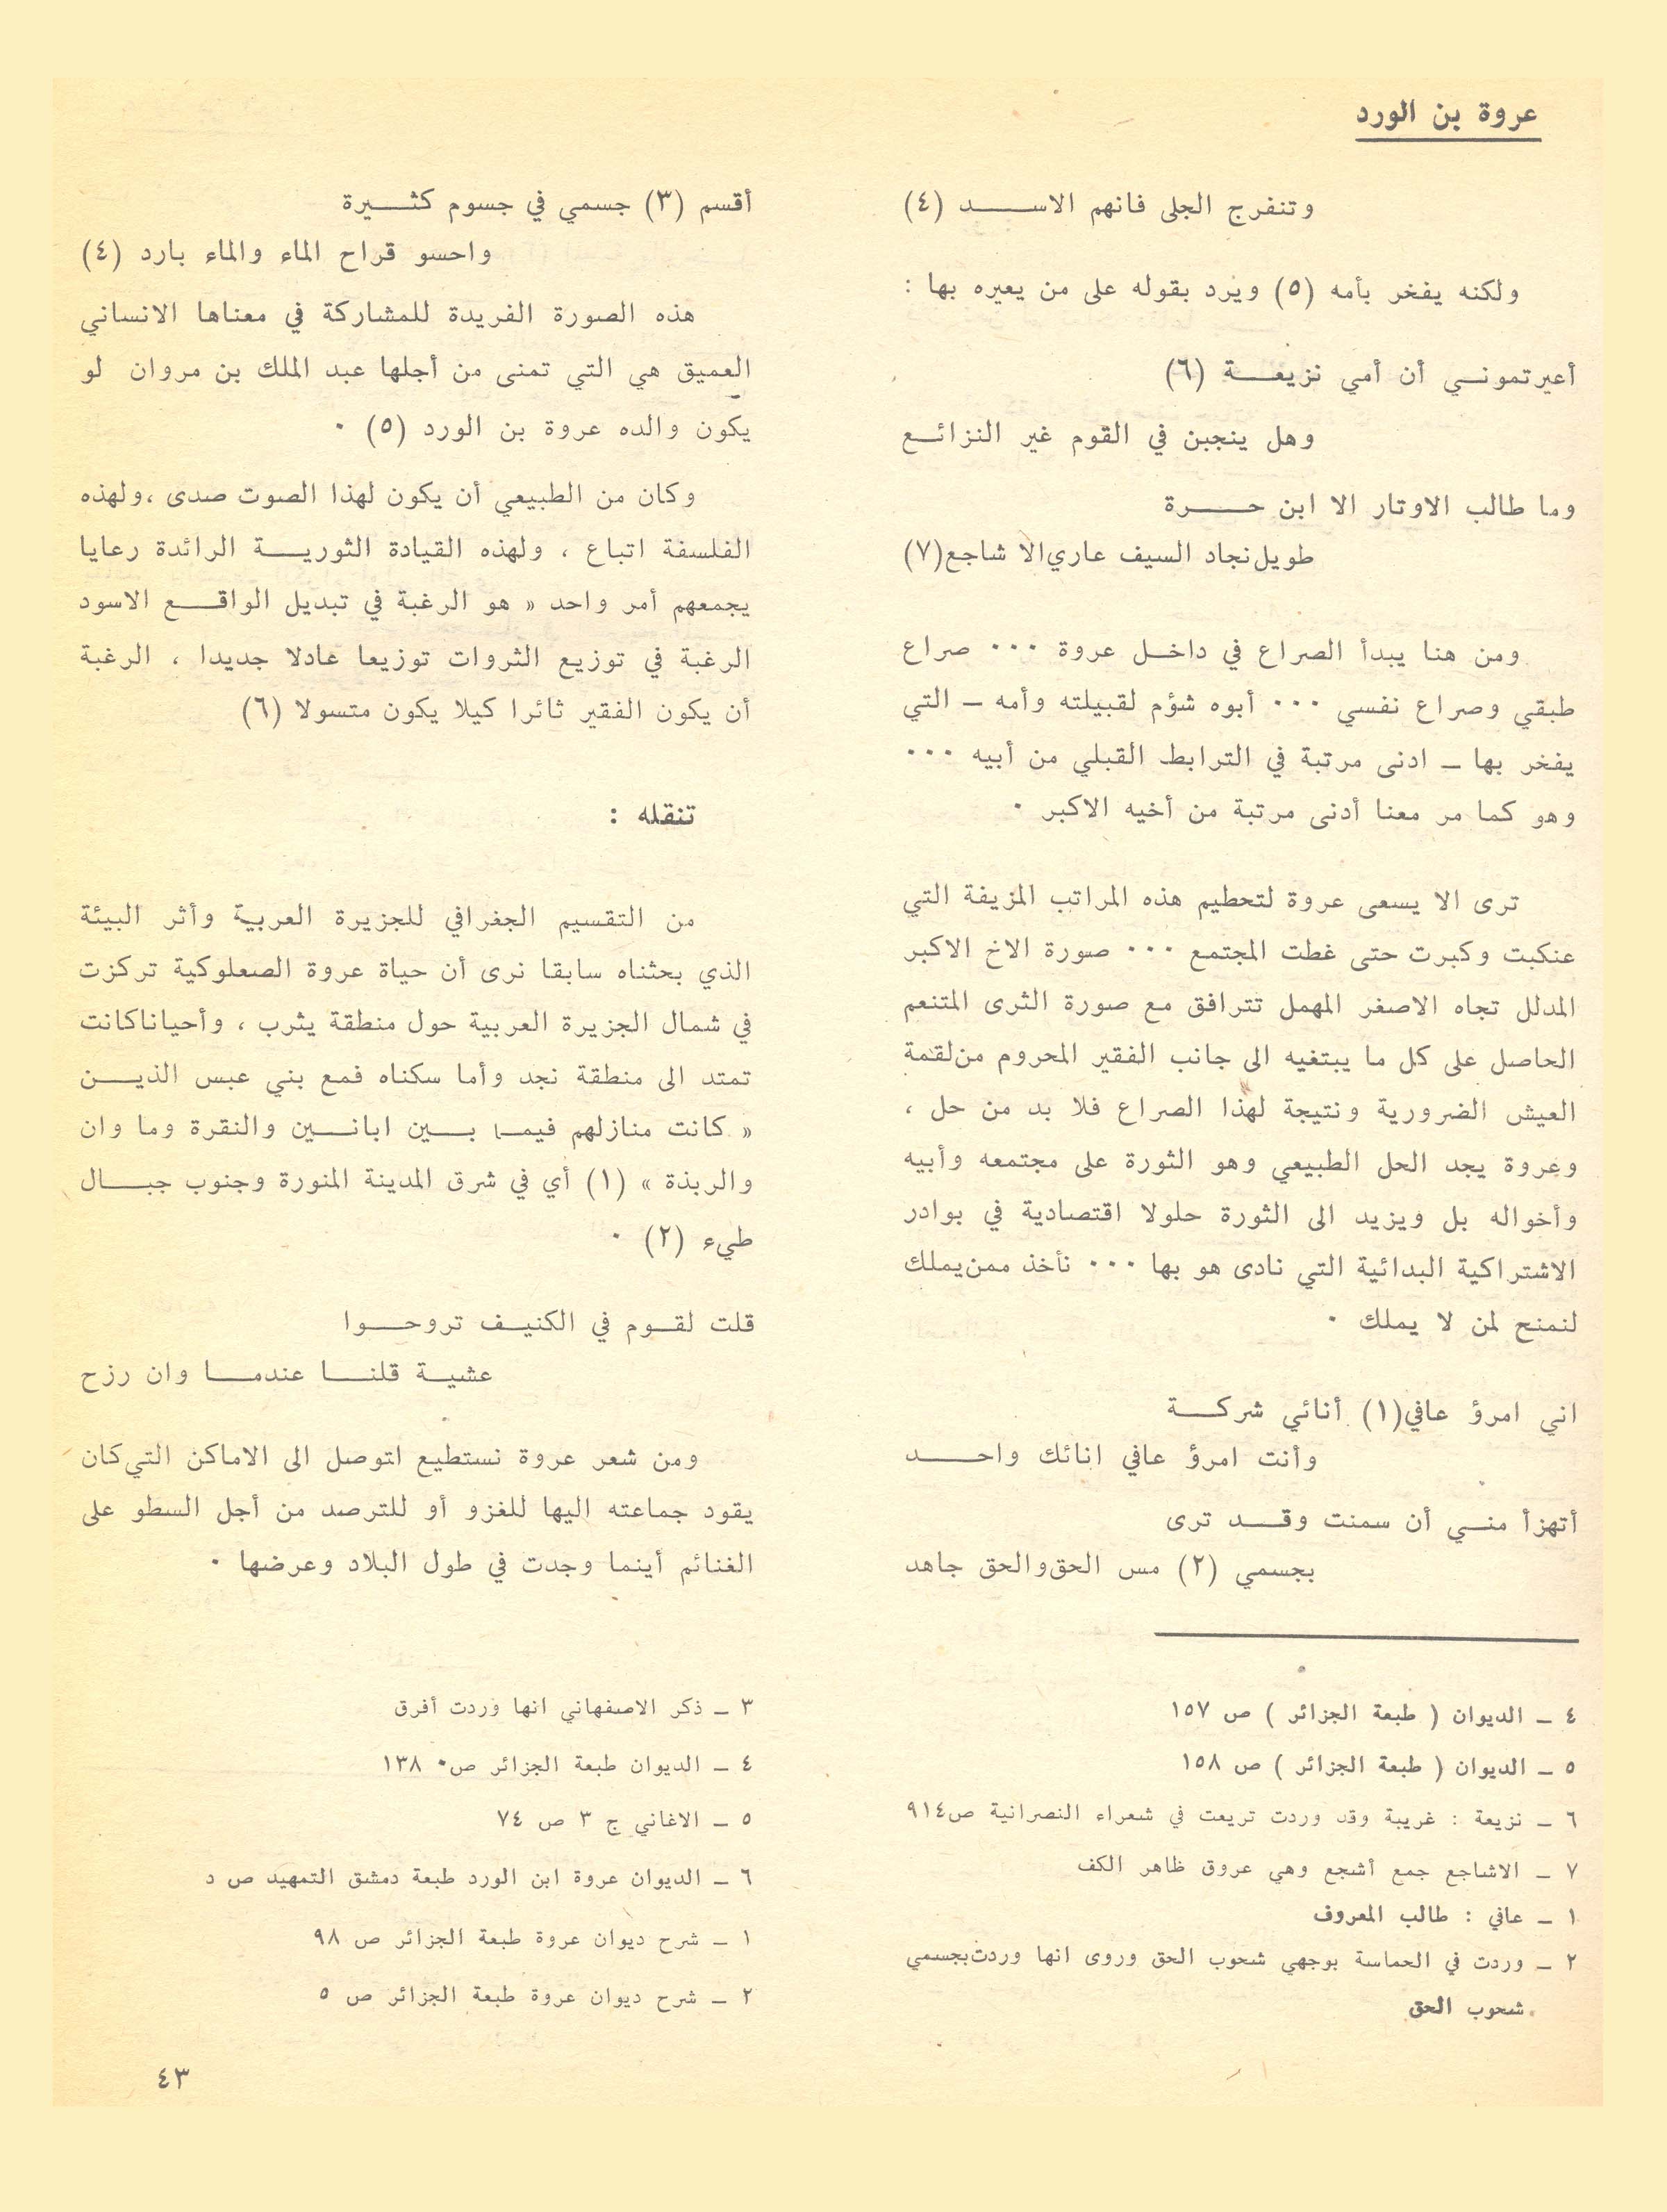 عروة بن الورد
وتنفرج الجلى فانهم الاسد (٤)
ولكنه يفخر بأمه (٥) ويرد بقوله على من يعيره بها :
أعيرتموني أن أمي نزيعة (٦)
وهل ينجبن في القوم غير النزائع
وما طالب الاوتار الا ابن حرة
طويل نجاد السيف عاري الا شاجع (٧)
ومن هنا يبدأ الصراع في داخل عروة ... صراع
طبقي وصراع نفسي ... أبوه شؤم لقبيلته وأمه – التي
يفخر بها – ادنى مرتبة في الترابط القبلي من أبيه ...
وهو كما مر معنا أدنى مرتبة من أخيه الاكبر .
ترى الا يسعى عروة لتحطيم هذه المراتب المزيفة التي
عنكبت وكبرت حتى غطت المجتمع ... صورة الاخ الاكبر
المدلل تجاه الاصغر المهمل تترافق مع صورة الثرى المتنعم
الحاصل على كل ما يبتغيه الى جانب الفقير المحروم من لقمة
العيش الضرورية ونتيجة لهذا الصراع فلا بد من حل ،
وعروة يجد الحل الطبيعي وهو الثورة على مجتمعه وأبيه
وأخواله بل ويزيد الى الثورة حلولا اقتصادية في بوادر
الاشتراكية البدائية التي نادى هو بها ... نأخذ ممن يملك
لنمنح لمن لا يملك .
اني امرؤ عافي (١) أنائي شركة
وأنت امرؤ عافي انائك واحد
أتهزأ مني أن سمنت وقد ترى
بجسمي (٢) مس الحق والحق جاهد
٤ – الديوان ( طبعة الجزائر ) ص ١٥٧
٥ – الديوان ( طبعة الجزائر ) ص ١٥٨
٦ – نزيعة : غريبة وقد وردت تريعت في شعراء النصرانية ص ٩١٤
٧ – الاشاجع جمع أشجع وهي عروق ظاهر الكف
١ – عافي : طالب المعروف
٢ – وردت في الحماسة بوجهي شحوب الحق وروى انها وردت بجسمي
شحوب الحق
أقسم (٣) جسمي في جسوم كثيرة
واحسو قراح الماء والماء بارد (٤)
هذه الصورة الفريدة للمشاركة في معناها الانساني
العميق هي التي تمنى من أجلها عبد الملك بن مروان لو
يكون والده عروة بن الورد (٥) .
وكان من الطبيعي أن يكون لهذا الصوت صدى ، ولهذه
الفلسفة اتباع ، ولهذه القيادة الثورية الرائدة رعايا
يجمعهم أمر واحد « هو الرغبة في تبديل الواقع الاسود
الرغبة في توزيع الثروات توزيعا عادلا جديدا ، الرغبة
أن يكون الفقير ثائرا كيلا يكون متسولا (٦)
تنقله :
من التقسيم الجغرافي للجزيرة العربية وأثر البيئة
الذي بحثناه سابقا نرى أن حياة عروة الصعلوكية تركزت
في شمال الجزيرة العربية حول منطقة يثرب ، وأحيانا كانت
تمتد الى منطقة نجد وأما سكناه فمع بني عبس الذين
« كانت منازلهم فيما بين ابانين والنقرة وما وان
والربذة » (١) أي في شرق المدينة المنورة وجنوب جبال
طيء (٢) .
قلت لقوم في الكنيف تروحوا
عشية قلنا عندما وان رزح
ومن شعر عروة نستطيع اتوصل الى الاماكن التي كان
يقود جماعته اليها للغزو أو للترصد من أجل السطو على
الغنائم أينما وجدت في طول البلاد وعرضها .
٣ – ذكر الاصفهاني انها وردت أفرق
٤ – الديوان طبعة الجزائر ص. ١٣٨
٥ – الاغاني ج ٣ ص ٧٤
٦ – الديوان عروة ابن الورد طبعة دمشق التمهيد ص د
١ – شرح ديوان عروة طبعة الجزائر ص ٩٨
٢ – شرح ديوان عروة طبعة الجزائر ص ٥
٤٣